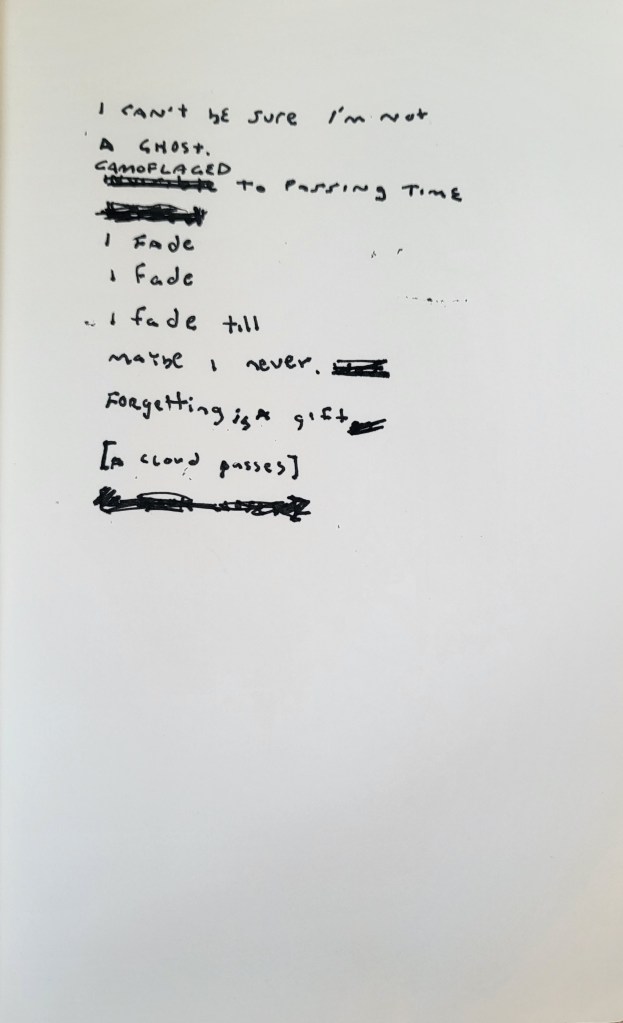 I CAN't bE Sure I'm Not
A GHOSt.
CAMOFLAGED
to PASSING TIME
I FAde
I Fade
I fade till
maybe I never.
FORgetting is A gift
[A CLOUD passes]